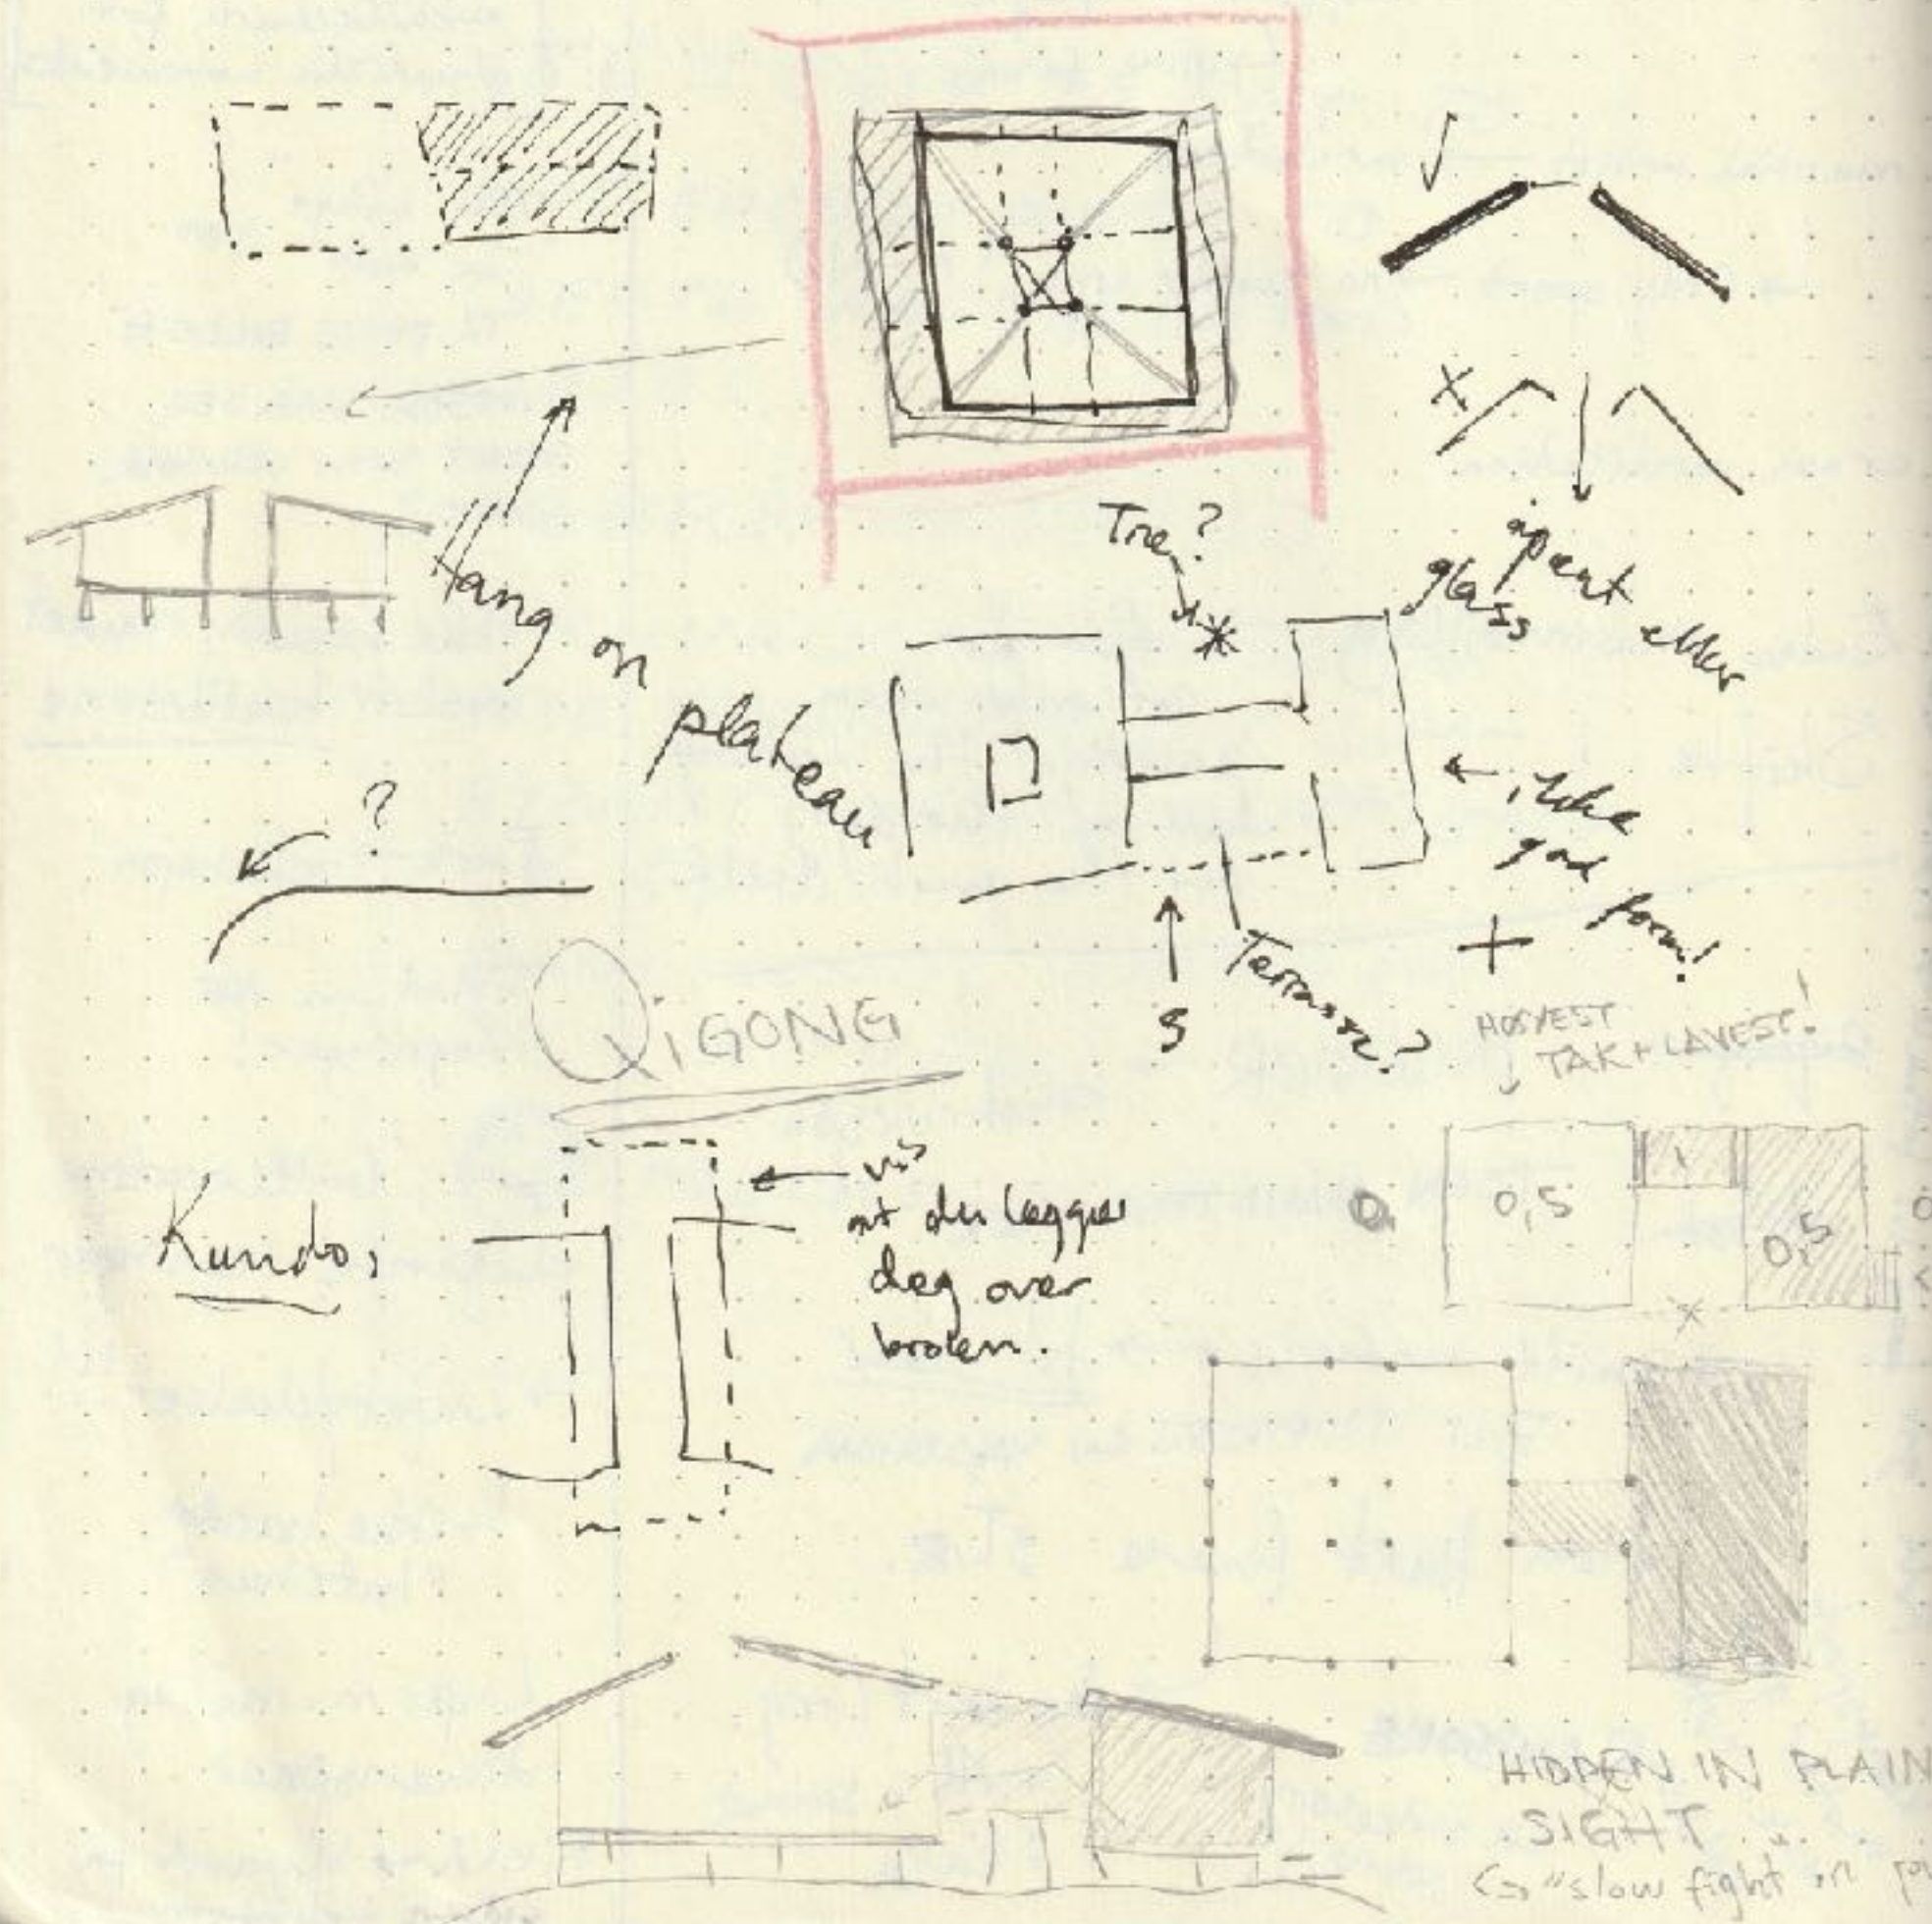 Tre?
Hang on plateau
åpent eller
glass
?
ikke
god
form!
+
Terrasse?
S
QIGONG
HØYEST
TAK + LAVEST!
Kundo,
hvis
at du legger
deg over
broten.
0,5
1
0,5
HIDDEN IN PLAIN
SIGHT
"slow fight on